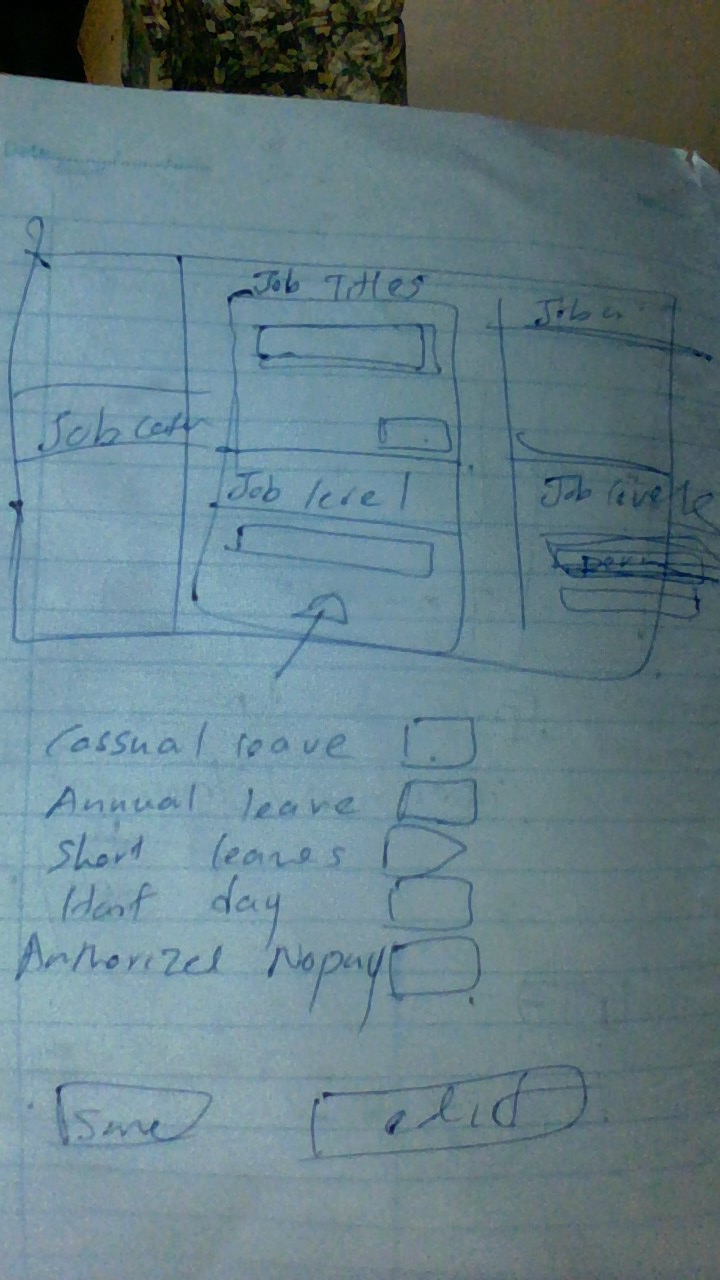 Job Titles
Job
Job
Job level
Job
Cassual leave
Annual leave
Short leaves
Half day
Authorized Nopay
Save
edit